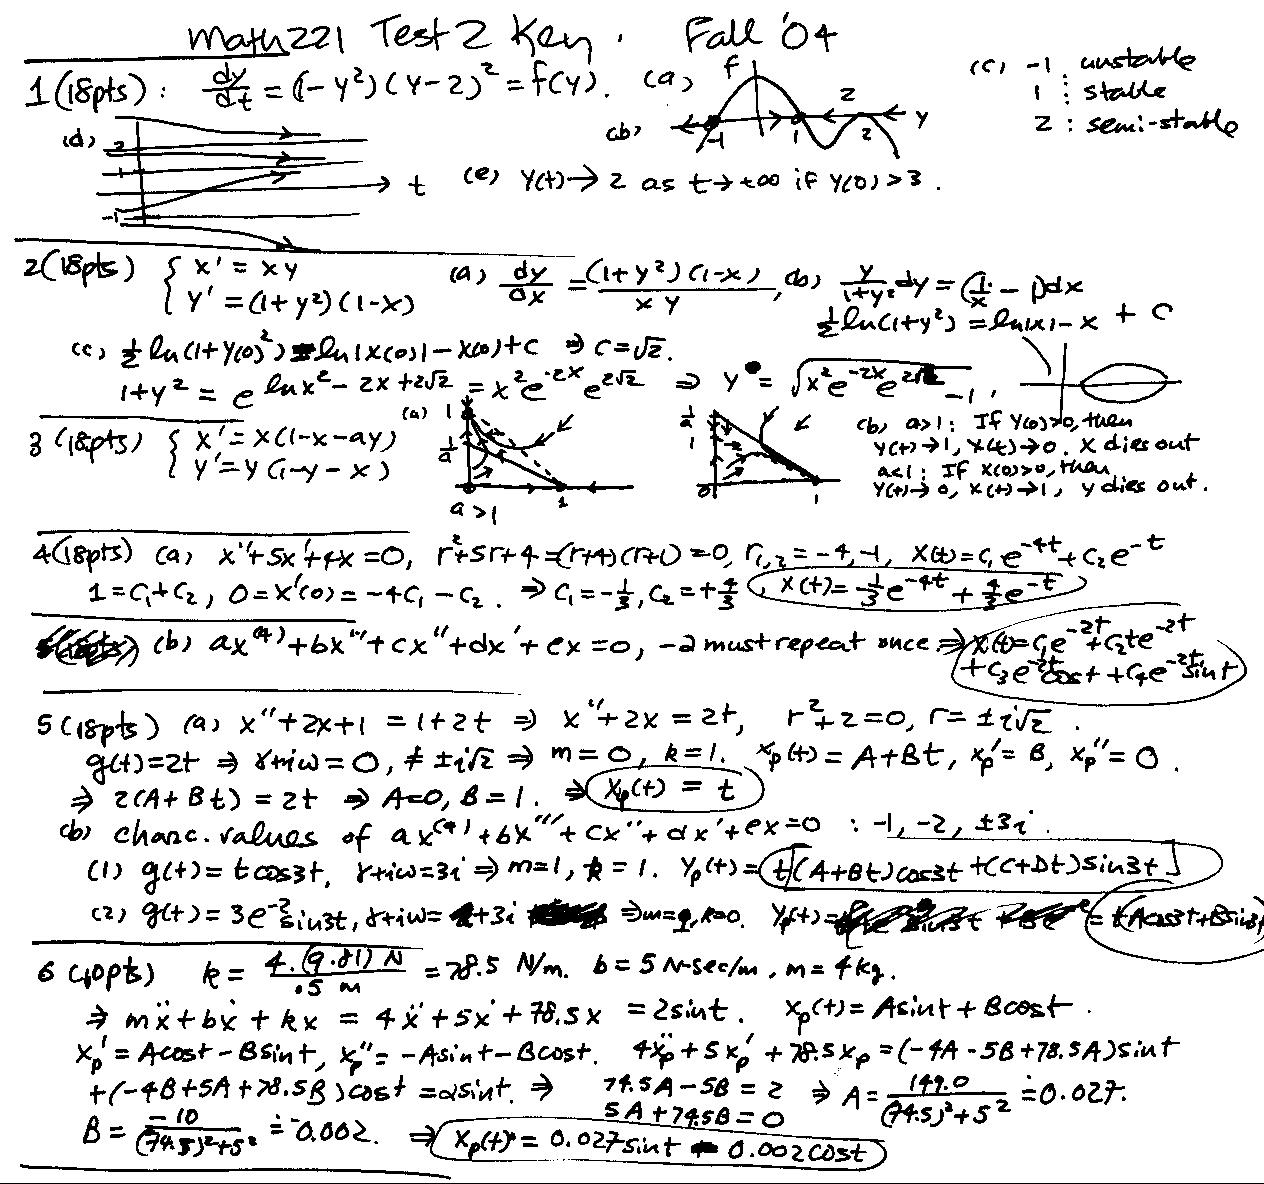 Math221 Test 2 Key. Fall '04
1(18pts): dy/dt = (1-y²)(y-2)² = f(y). (a) f
(c) -1 : unstable
1 : stable
2 : semi-stable
(b) -1 1 2 2 y
(d) 2 1 -1 t
(e) y(t)→2 as t→+∞ if y(0)>3.
2(18pts) { x' = xy
y' = (1+y²)(1-x)
(a) dy/dx = (1+y²)(1-x)/xy, (b) y/(1+y²) dy = (1/x - 1)dx
½ln(1+y²) = ln|x| - x + C
(c) ½ ln(1+y(0)²) = ln|x(0)| - x(0)+C ⇒ C=√2.
1+y² = e^(lnx² - 2x + 2√2) = x²e^(-2x)e^(2√2) ⇒ y = √(x²e^(-2x)e^(2√2) - 1),
3(18pts) { x' = x(1-x-ay)
y' = y(1-y-x)
(a) 1 1/a 1 a>1
1/a 1 0 1
(b) a>1: If y(0)>0, then
y(t)→1, x(t)→0. x dies out
a<1: If x(0)>0, then
y(t)→0, x(t)→1, y dies out.
4(18pts) (a) x''+5x'+4x=0, r²+5r+4=(r+4)(r+1)=0, r₁,₂ = -4,-1, x(t)=c₁e^(-4t)+c₂e^(-t)
1=c₁+c₂, 0=x'(0)=-4c₁-c₂. ⇒ c₁=-1/3, c₂=+4/3, x(t)=-1/3e^(-4t)+4/3e^(-t)
(b) ax⁽⁴⁾+bx'''+cx''+dx'+ex=0, -2 must repeat once ⇒ x(t)=c₁e^(-2t)+c₂te^(-2t)
+c₃e^(-2t)cost+c₄e^(-2t)sint
5(18pts) (a) x''+2x+1 = 1+2t ⇒ x''+2x=2t, r²+2=0, r=±i√2.
g(t)=2t ⇒ γ+iω=0, ≠ ±i√2 ⇒ m=0, k=1. xp(t)=A+Bt, xp'=B, xp''=0.
⇒ 2(A+Bt)=2t ⇒ A=0, B=1. ⇒ xp(t) = t
(b) charc. values of ax⁽⁴⁾+bx'''+cx''+dx'+ex=0 : -1, -2, ±3i.
(1) g(t)=tcos3t, γ+iω=3i ⇒ m=1, k=1. yp(t)=t[(A+Bt)cos3t+(C+Dt)sin3t]
(2) g(t)=3e^(-2)sin3t, γ+iω= +3i ⇒ m=1, k=0. yp(t)= = t(Acos3t+Bsin3t
6(10pts) k = 4·(9.81) N/.5 m = 78.5 N/m. b=5 N-sec/m, m=4kg.
⇒ mẍ+bẋ+kx = 4ẍ+5ẋ+78.5x = 2sint. xp(t)=Asint+Bcost.
xp'=Acost-Bsint, xp''=-Asint-Bcost. 4xp''+5xp'+78.5xp=(-4A-5B+78.5A)sint
+(-4B+5A+78.5B)cost=2sint. ⇒ 74.5A-5B=2 ⇒ A=149.0/((74.5)²+5²)≐0.027.
5A+74.5B=0
B=-10/((74.5)²+5²)≐-0.002. ⇒ xp(t)=0.027sint - 0.002cost